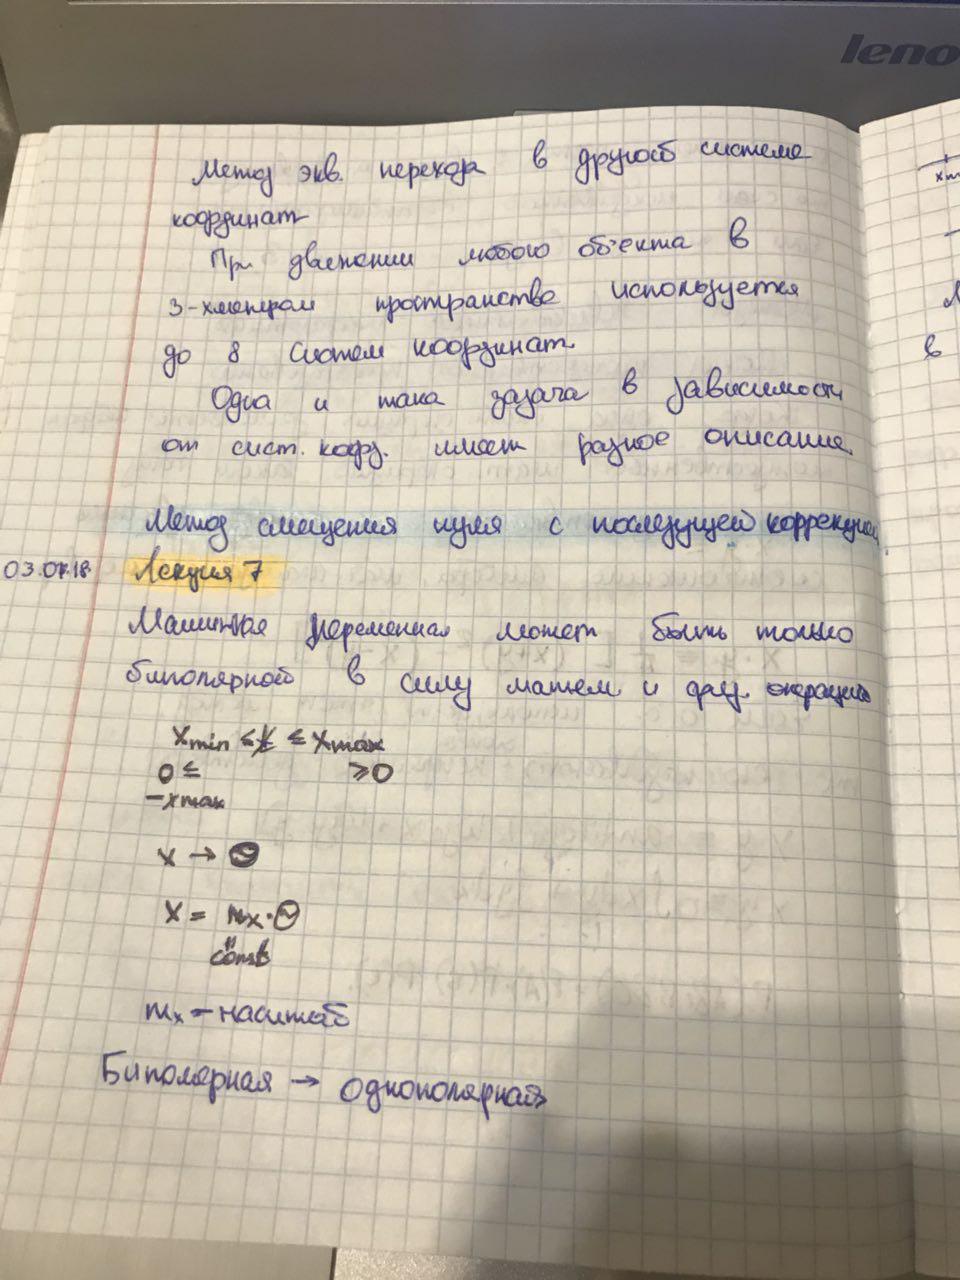 leno
Метод экв. перехода в другой системе
координат
При движении любого объекта в
3-хмерном пространстве используется
до 8 систем координат
Одна и таже задача в зависимости
от сист. коорд. имеет разное описание
Метод смещения нуля с последущей коррекцией
03.04.18. Лекция 7
Машинная переменная может быть только
биполярной в силу матем и физ. операций
x min ≤ x ≤ x max
0 ≤ ≥ 0
-x max
x →
x = mx ·
const
mx – масштаб
Биполярная → однополярная
xm
в